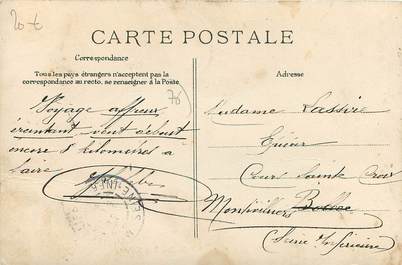 20 €
CARTE POSTALE
Correspondance
Tous les pays étrangers n'acceptent pas la
correspondance au recto, se renseigner à la Poste.
Adresse
76
Voyage affreux
éreintant, vent debout
encore 8 kilomètres à
faire
Madame Lassire
Cour Sainte Croix
Montivilliers
(Seine Inférieure)